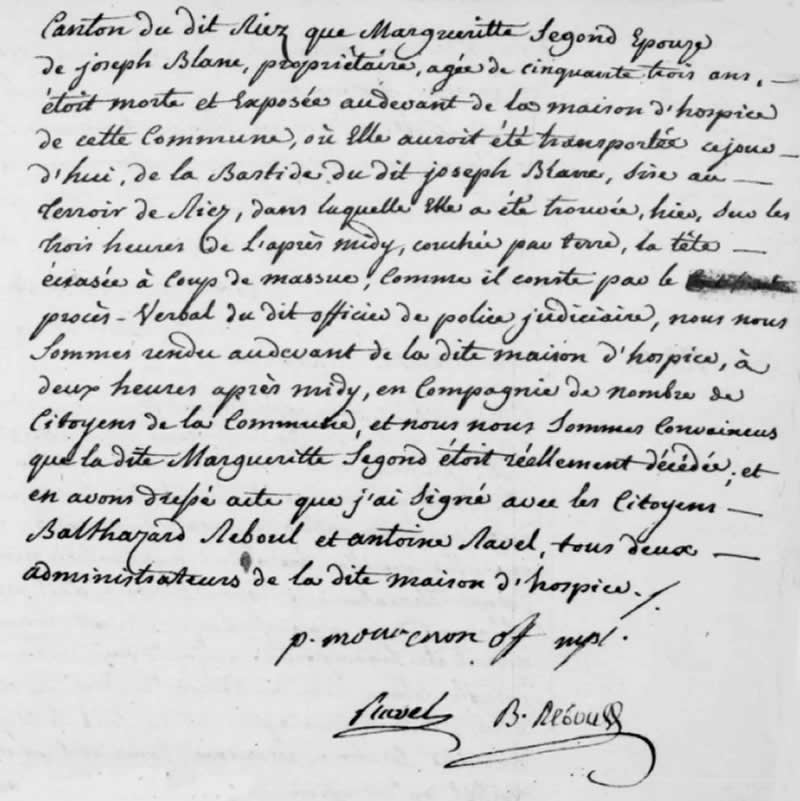 Canton du dit Riez que Margueritte Segond Epouze
de joseph Blanc, propriètaire, agée de cinquante trois ans, —
étoit morte et Exposée audevant de la maison d'hospice
de cette Commune, où Elle auroit été transportée cejour —
d'hui, de la Bastide du dit joseph Blanc, sise au —
terroir de Riez, dans laquelle Elle a été trouvée, hier, sur les
trois heures de L'après midy, couchée par terre, la tête —
écrasée à Coup de massue, Comme il conste par le
procès-Verbal du dit officier de police judiciaire, nous nous
Sommes rendu audevant de la dite maison d'hospice, à
deux heures après midy, en Compagnie de nombre de
Citoyens de la Commune, et nous nous Sommes Convaincus
que la dite Margueritte Segond étoit réellement décédée; et
en avons dressé acte que j'ai Signé avec les Citoyens —
Balthazard Reboul et antoine Ravel, tous deux —
administrateurs de la dite maison d'hospice./.
p. off
Ravel B. Reboul